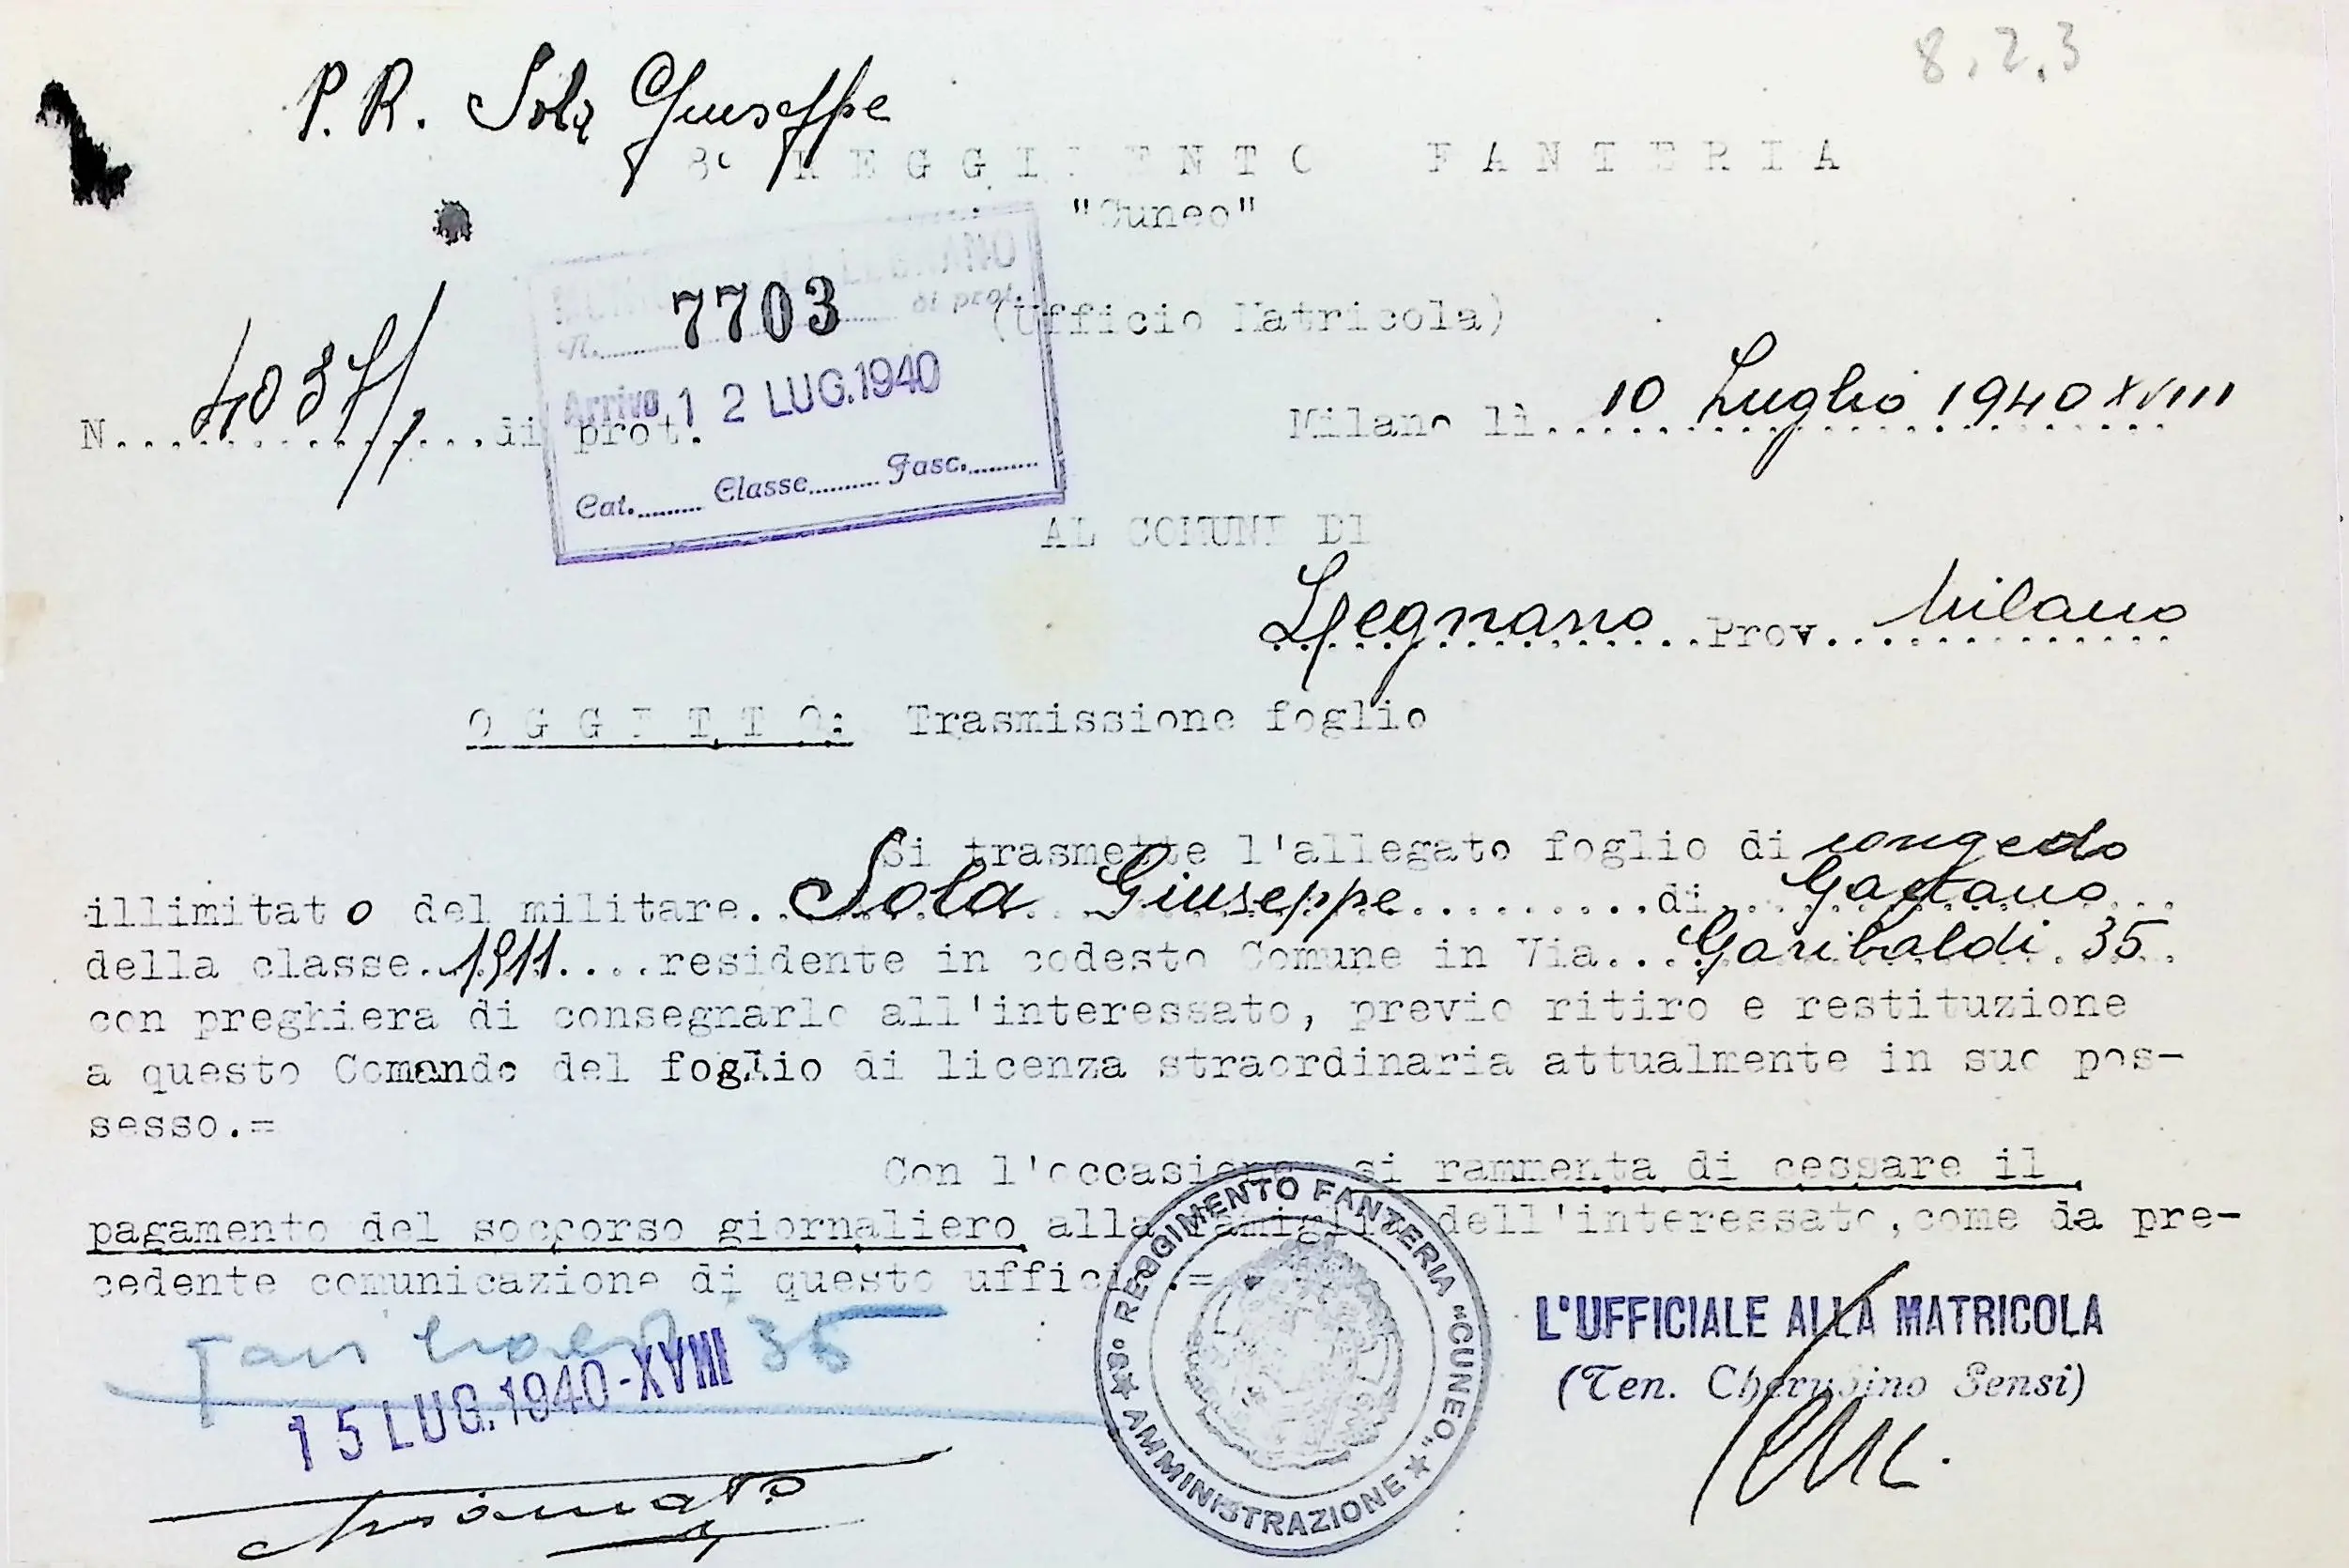 8.2.3
P.R. Sola Giuseppe
8° REGGIMENTO FANTERIA
"Cuneo"
LEGNANO
N. 7703 di prot.
(Ufficio Matricola)
Arrivo 12 LUG.1940
Cat. Classe Fasc.
N. 4037/1 di prot.
Milano lì 10 Luglio 1940 XVIII
AL COMUNE DI
Legnano Prov. Milano
OGGETTO: Trasmissione foglio
Si trasmette l'allegato foglio di congedo
illimitato del militare Sola Giuseppe di Gaetano
della classe 1911 residente in codesto Comune in Via Garibaldi 35
con preghiera di consegnarlo all'interessato, previo ritiro e restituzione
a questo Comando del foglio di licenza straordinaria attualmente in suo pos-
sesso.=
Con l'occasione si rammenta di cessare il
pagamento del soccorso giornaliero alla famiglia dell'interessato,come da pre-
cedente comunicazione di questo ufficio.=
35
15 LUG.1940-XVIII
8° REGGIMENTO FANTERIA "CUNEO"
★ AMMINISTRAZIONE ★
L'UFFICIALE ALLA MATRICOLA
(Ten. Cherubino Sensi)